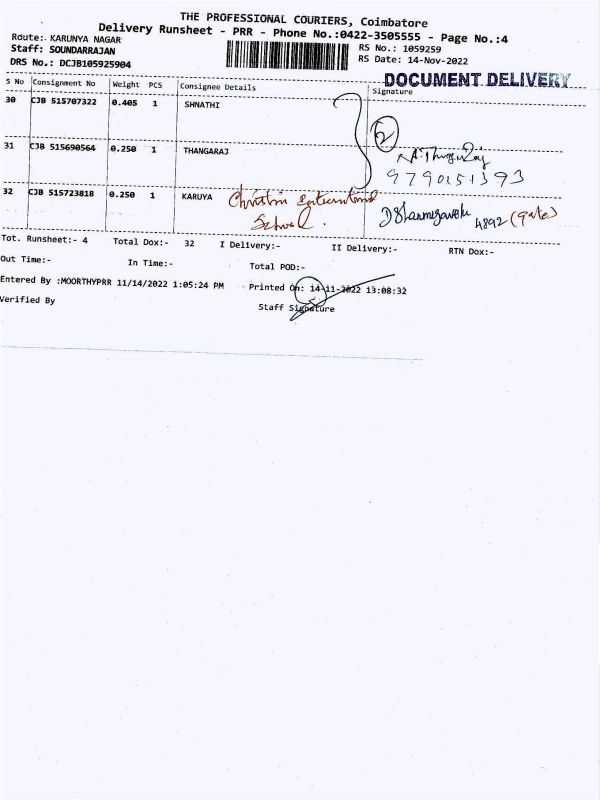 THE PROFESSIONAL COURIERS, Coimbatore
Delivery Runsheet - PRR - Phone No.:0422-3505555 - Page No.:4
Route:- KARUNYA NAGAR
Staff: SOUNDARRAJAN
RS No.: 1059259
DRS No.: DCJB105925904
RS Date: 14-Nov-2022
DOCUMENT DELIVERY
S No Consignment No Weight PCS Consignee Details Signature
30 CJB 515707322 0.405 1 SHNATHI
2
31 CJB 515690564 0.250 1 THANGARAJ
9790151393
32 CJB 515723818 0.250 1 KARUYA Christin International
School. 4892 (gate)
Tot. Runsheet:- 4 Total Dox:- 32 I Delivery:- II Delivery:- RTN Dox:-
Out Time:- In Time:- Total POD:-
Entered By :MOORTHYPRR 11/14/2022 1:05:24 PM Printed On: 14-11-2022 13:08:32
Verified By Staff Signature